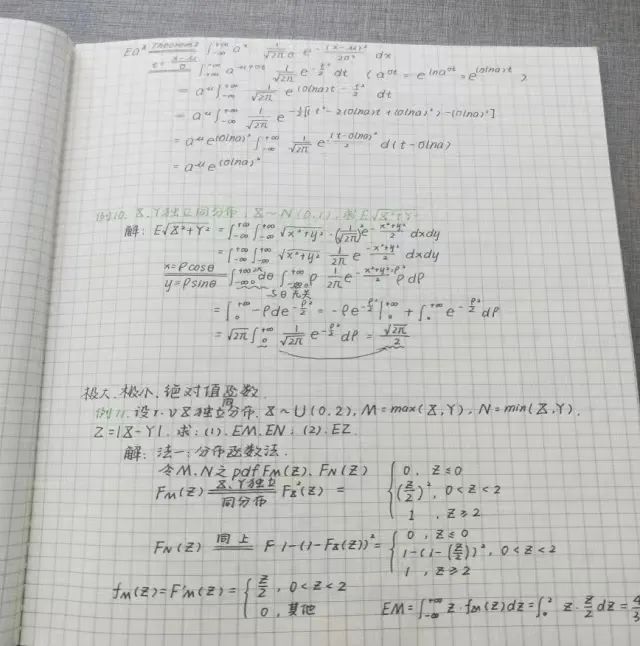 Ea^X Theorem2 ∫_{-∞}^{+∞} a^x 1/(√2π σ) e^{-(x-μ)²/2σ²} dx
t=(x-μ)/σ ∫_{-∞}^{+∞} a^{μ+σt} 1/√2π e^{-t²/2} dt (a^{σt} = e^{lna^{σt}} = e^{(σlna)t})
= a^μ ∫_{-∞}^{+∞} 1/√2π e^{(σlna)t - t²/2} dt
= a^μ ∫_{-∞}^{+∞} 1/√2π e^{-1/2[t²-2(σlna)t+(σlna)²)-(σlna)²]}
= a^μ e^{(σlna)²} ∫_{-∞}^{+∞} 1/√2π e^{-(t-σlna)²/2} d(t-σlna)
= a^μ e^{(σlna)²}
例10. X,Y独立同分布, X~N(0,1), 求E√X²+Y²
解: E√X²+Y² = ∫_{-∞}^{+∞} ∫_{-∞}^{+∞} √x²+y² · (1/√2π)² e^{-(x²+y²)/2} dxdy
= ∫_{-∞}^{+∞} ∫_{-∞}^{+∞} √x²+y² 1/2π e^{-(x²+y²)/2} dxdy
x=ρcosθ
y=ρsinθ
与θ无关
= ∫_0^{+∞} -ρde^{-ρ²/2} = -ρe^{-ρ²/2}|_0^{+∞} + ∫_0^{+∞} e^{-ρ²/2} dρ
= √2π ∫_0^{+∞} 1/√2π e^{-ρ²/2} dρ = √2π/2
极大、极小、绝对值函数
例11. 设r.v X独立同分布. X~U(0,2), M=max(X,Y), N=min(X,Y),
Z=|X-Y|. 求: (1). EM. EN; (2). EZ.
解: 法一: 分布函数法.
令M,N之pdf F_M(Z), F_N(Z)
F_M(Z) X,Y独立同分布 F_X²(Z) = { 0, Z≤0
(Z/2)², 0<Z<2
1, Z≥2
F_N(Z) 同上 F 1-(1-F_X(Z))² = { 0, Z≤0
1-(1-(Z/2))², 0<Z<2
1, Z≥2
f_M(Z)=F'_M(Z)= { Z/2, 0<Z<2
0, 其他
EM=∫_{-∞}^{+∞} Z·f_M(Z)dZ=∫_0^2 Z·Z/2 dZ=4/3